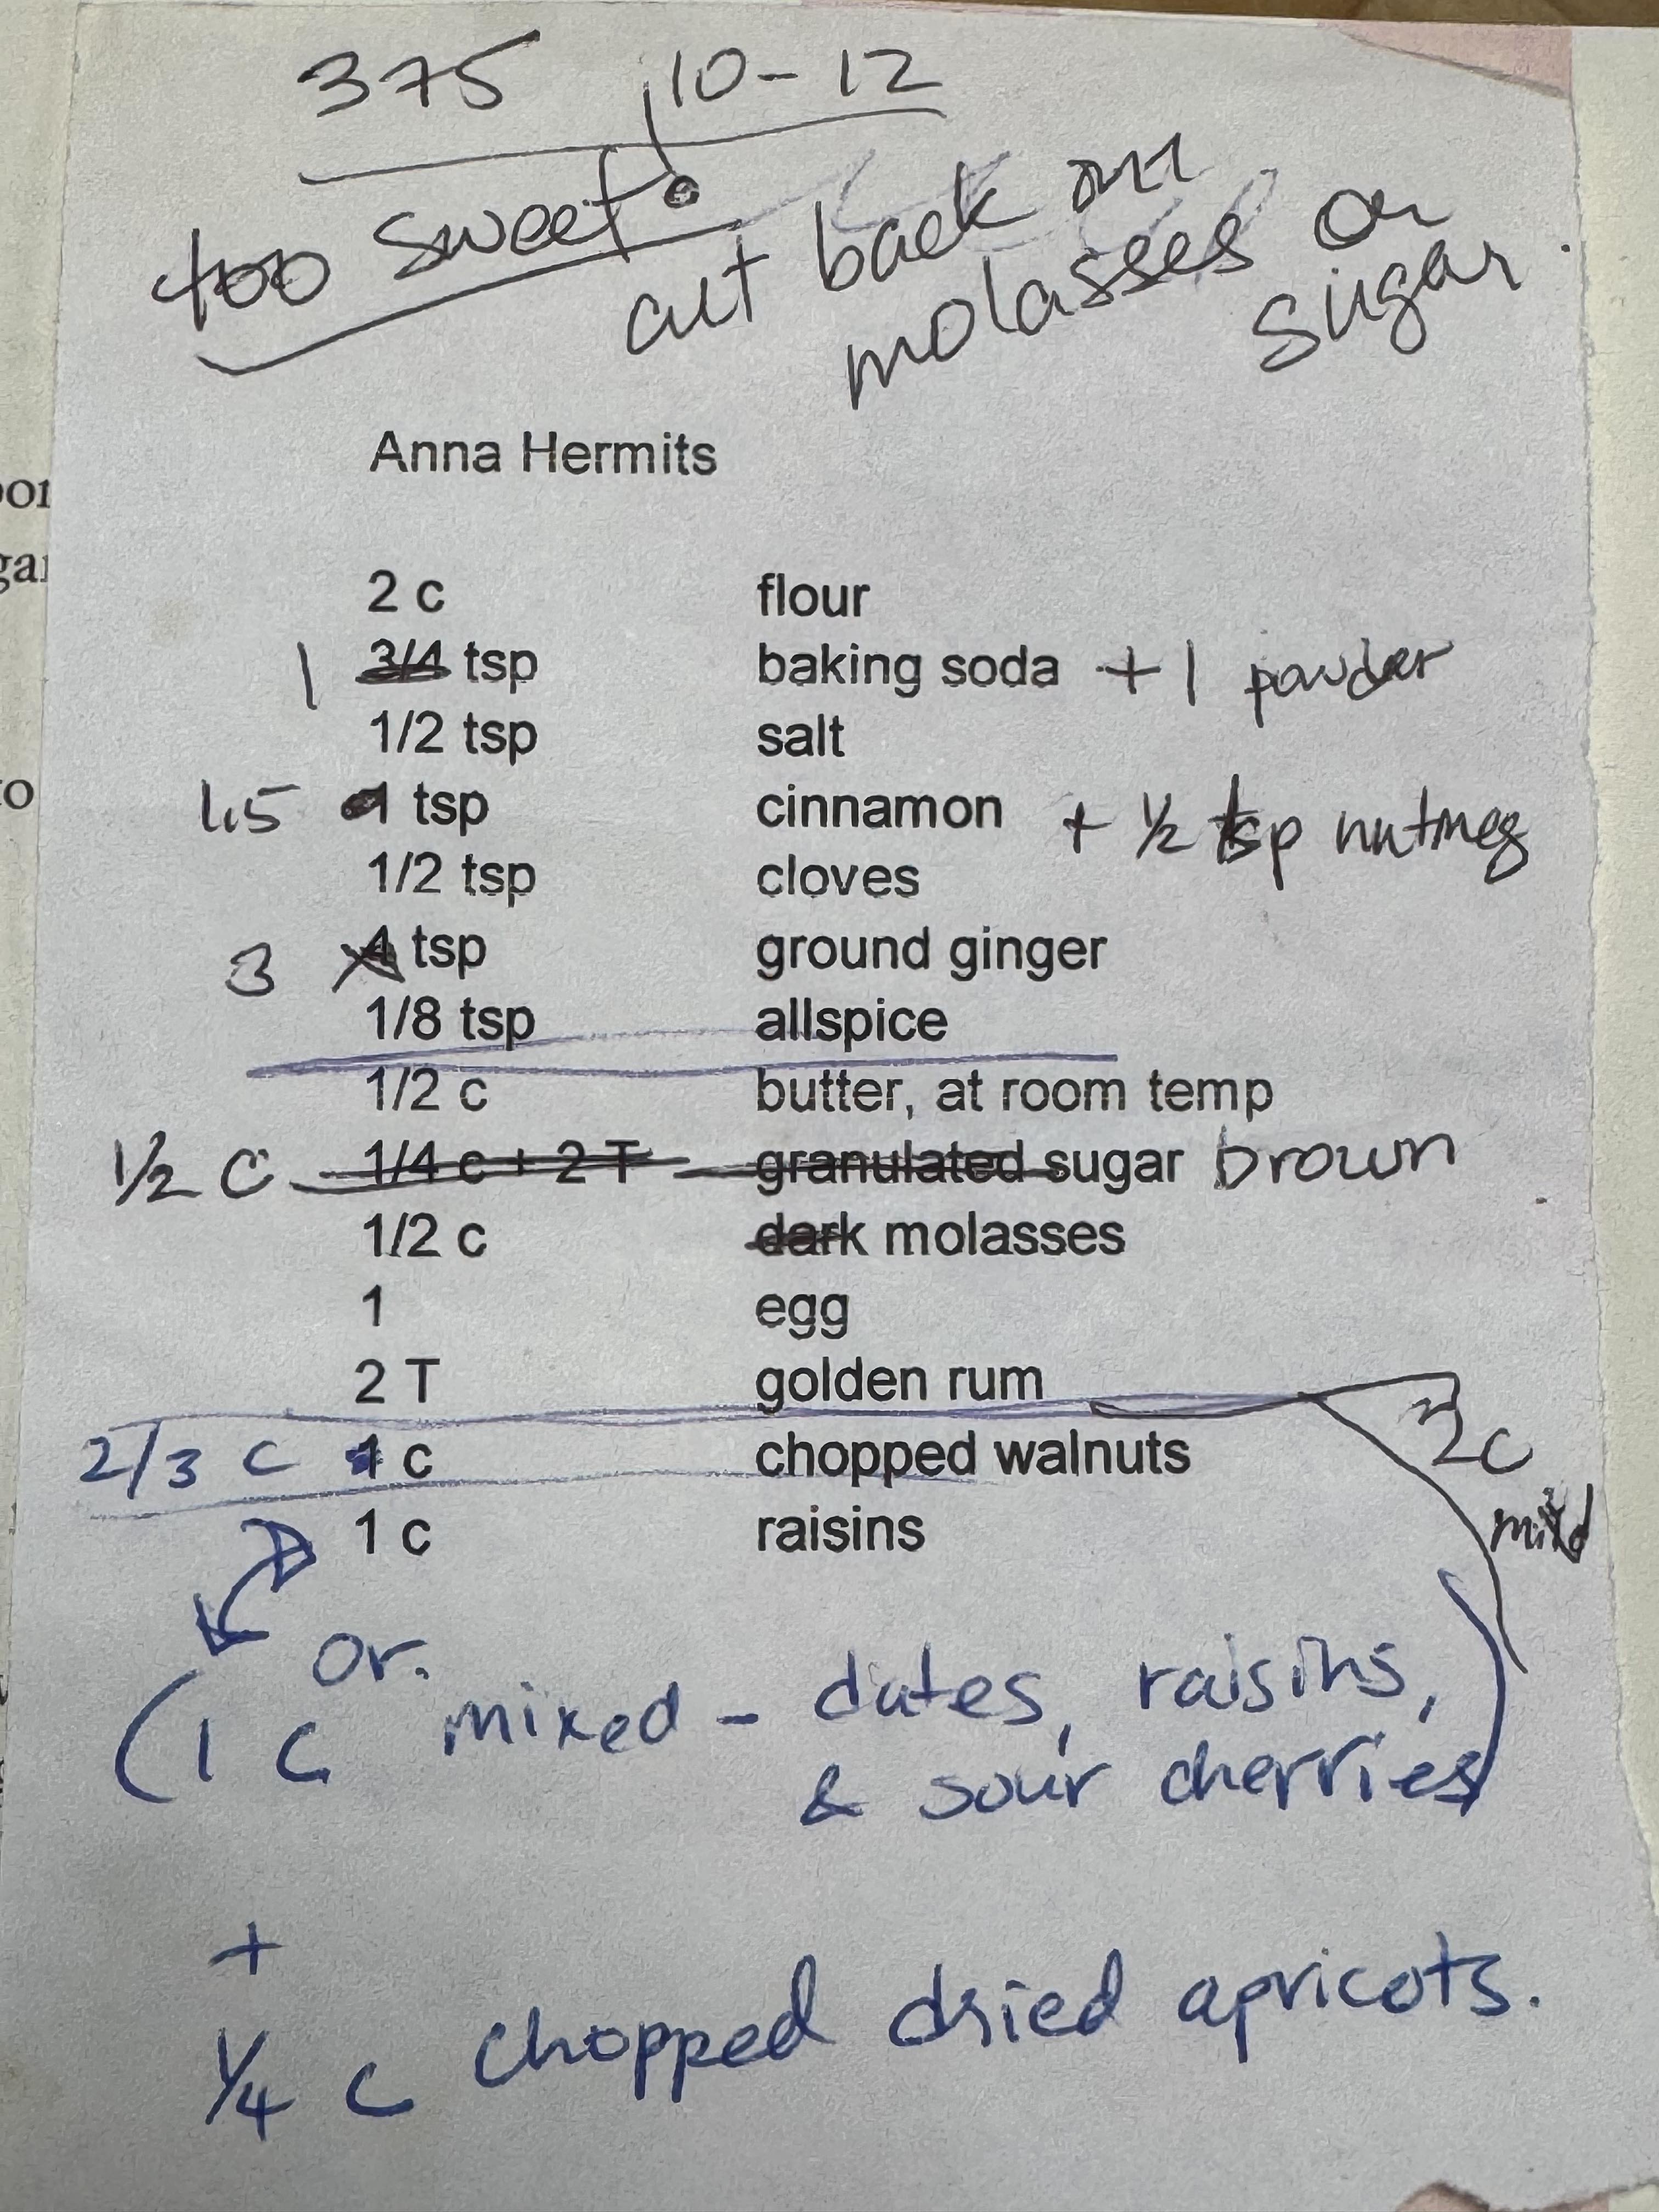 375 10-12
too sweet!
cut back on
molasses or
sugar.
Anna Hermits
2 c flour
1 3/4 tsp baking soda + 1 powder
1/2 tsp salt
1.5 1 tsp cinnamon + 1/2 tsp nutmeg
1/2 tsp cloves
3 tsp ground ginger
1/8 tsp allspice
1/2 c butter, at room temp
1/2 C 1/4 c + 2 T granulated sugar brown
1/2 c dark molasses
1 egg
2 T golden rum
2/3 C 1 c chopped walnuts 2c
1 c raisins
or.
(1 C mixed - dates, raisins,
& sour cherries)
+
1/4 C chopped dried apricots.